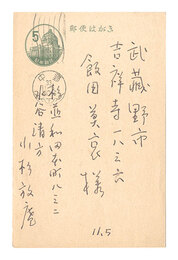 郵便はがき
5
武蔵野市
吉祥寺一八三六
飯田莫哀様
杉並和田本町八三二
水谷清方
小杉放庵
11.5